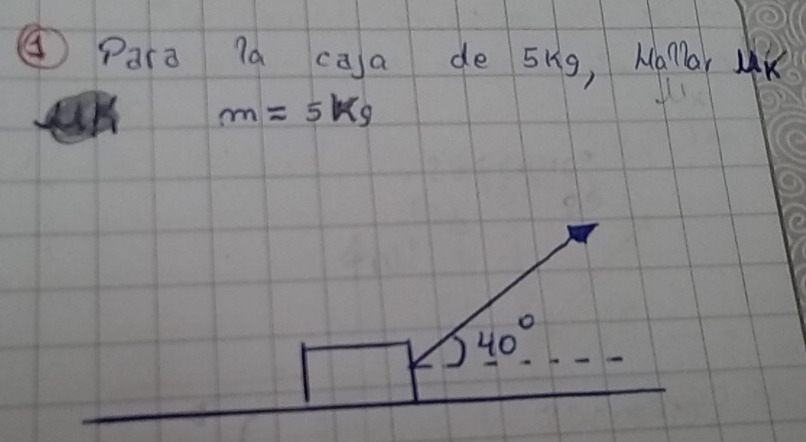 1 Para la caja de 5Kg, Hallar μK
μK m = 5Kg
40°